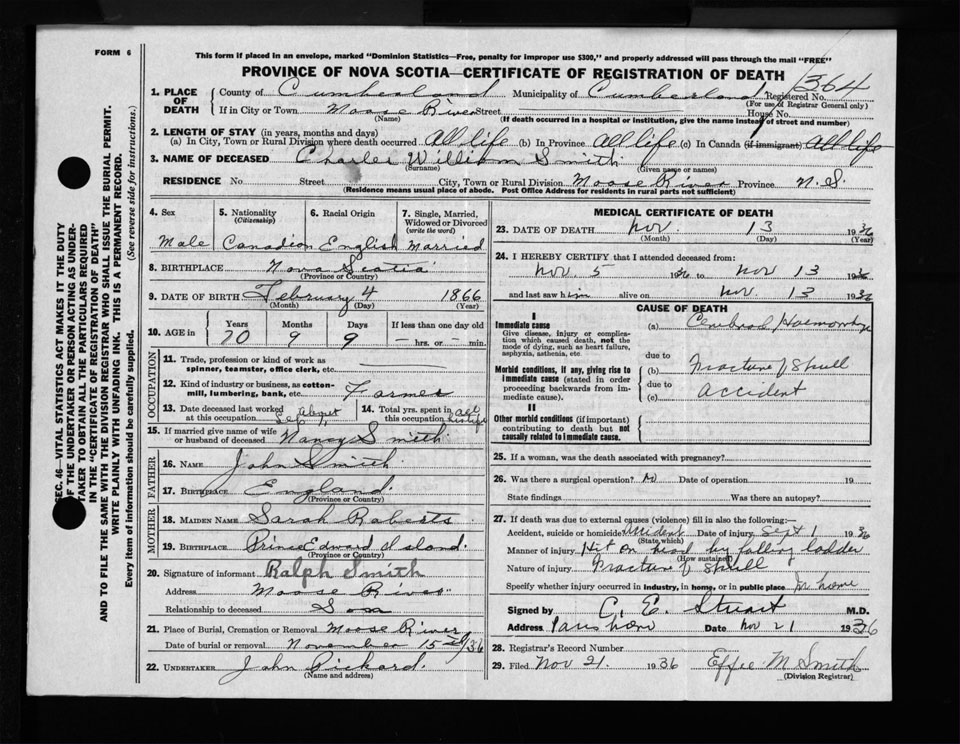 FORM 6
This form if placed in an envelope, marked "Dominion Statistics—Free, penalty for improper use $300," and properly addressed will pass through the mail "FREE"
PROVINCE OF NOVA SCOTIA—CERTIFICATE OF REGISTRATION OF DEATH
1. PLACE OF DEATH County of Cumberland Municipality of Cumberland Registered No. 1364
(For use of Registrar General only)
If in City or Town Moose River Street House No.
(Name) (If death occurred in a hospital or institution, give the name instead of street and number)
2. LENGTH OF STAY (in years, months and days)
(a) In City, Town or Rural Division where death occurred All life (b) In Province All life (c) In Canada (if immigrant) All life
3. NAME OF DECEASED Charles William Smith
(Surname) (Given name or names)
RESIDENCE No. Street City, Town or Rural Division Moose River Province N.S.
(Residence means usual place of abode. Post Office Address for residents in rural parts not sufficient)
4. Sex 5. Nationality (Citizenship) 6. Racial Origin 7. Single, Married, Widowed or Divorced (write the word)
Male Canadian English Married
8. BIRTHPLACE Nova Scotia
(Province or Country)
9. DATE OF BIRTH February 4 1866
(Month) (Day) (Year)
10. AGE in Years Months Days If less than one day old
70 9 9 — hrs. or — min.
OCCUPATION
11. Trade, profession or kind of work as spinner, teamster, office clerk, etc.
12. Kind of industry or business, as cotton-mill, lumbering, bank, etc. Farmer
13. Date deceased last worked at this occupation Sept 14. Total yrs. spent in this occupation all
15. If married give name of wife or husband of deceased Nancy Smith
FATHER
16. NAME John Smith
17. BIRTHPLACE England
(Province or Country)
MOTHER
18. MAIDEN NAME Sarah Roberts
19. BIRTHPLACE Prince Edward Island
(Province or Country)
20. Signature of informant Ralph Smith
Address Moose River
Relationship to deceased Son
21. Place of Burial, Cremation or Removal Moose River
Date of burial or removal November 15 1936
22. UNDERTAKER John Rickard
(Name and address)
MEDICAL CERTIFICATE OF DEATH
23. DATE OF DEATH Nov. 13 1936
(Month) (Day) (Year)
24. I HEREBY CERTIFY that I attended deceased from:
Nov. 5 1936 to Nov 13 1936
and last saw him alive on Nov. 13 1936
CAUSE OF DEATH
I
Immediate cause (a) Cerebral Haemorrhage
Give disease, injury or complication which caused death, not the mode of dying, such as heart failure, asphyxia, asthenia, etc.
due to
Morbid conditions, if any, giving rise to immediate cause (stated in order proceeding backwards from immediate cause). (b) Fracture of Skull
due to
(c) accident
II
Other morbid conditions (if important) contributing to death but not causally related to immediate cause.
25. If a woman, was the death associated with pregnancy?
26. Was there a surgical operation? No Date of operation 19
State findings Was there an autopsy?
27. If death was due to external causes (violence) fill in also the following:—
Accident, suicide or homicide Accident Date of injury Sept 1 1936
(State which)
Manner of injury Hit on head by falling ladder
(How sustained)
Nature of injury Fracture of Skull
Specify whether injury occurred in industry, in home, or in public place In home
Signed by C. E. Stuart M.D.
Address Parrsboro Date Nov 21 1936
28. Registrar's Record Number
29. Filed Nov 21. 1936 Effie M Smith
(Division Registrar)
SEC. 46—VITAL STATISTICS ACT MAKES IT THE DUTY
OF THE UNDERTAKER OR PERSON ACTING AS UNDER-
TAKER TO OBTAIN ALL THE PARTICULARS REQUIRED
IN THE "CERTIFICATE OF REGISTRATION OF DEATH"
AND TO FILE THE SAME WITH THE DIVISION REGISTRAR WHO SHALL ISSUE THE BURIAL PERMIT.
WRITE PLAINLY WITH UNFADING INK. THIS IS A PERMANENT RECORD.
Every item of information should be carefully supplied. (See reverse side for instructions.)